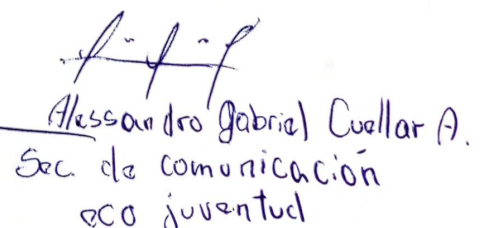 Alessandro Gabriel Cuellar A.
Sec. de comunicación
eco juventud